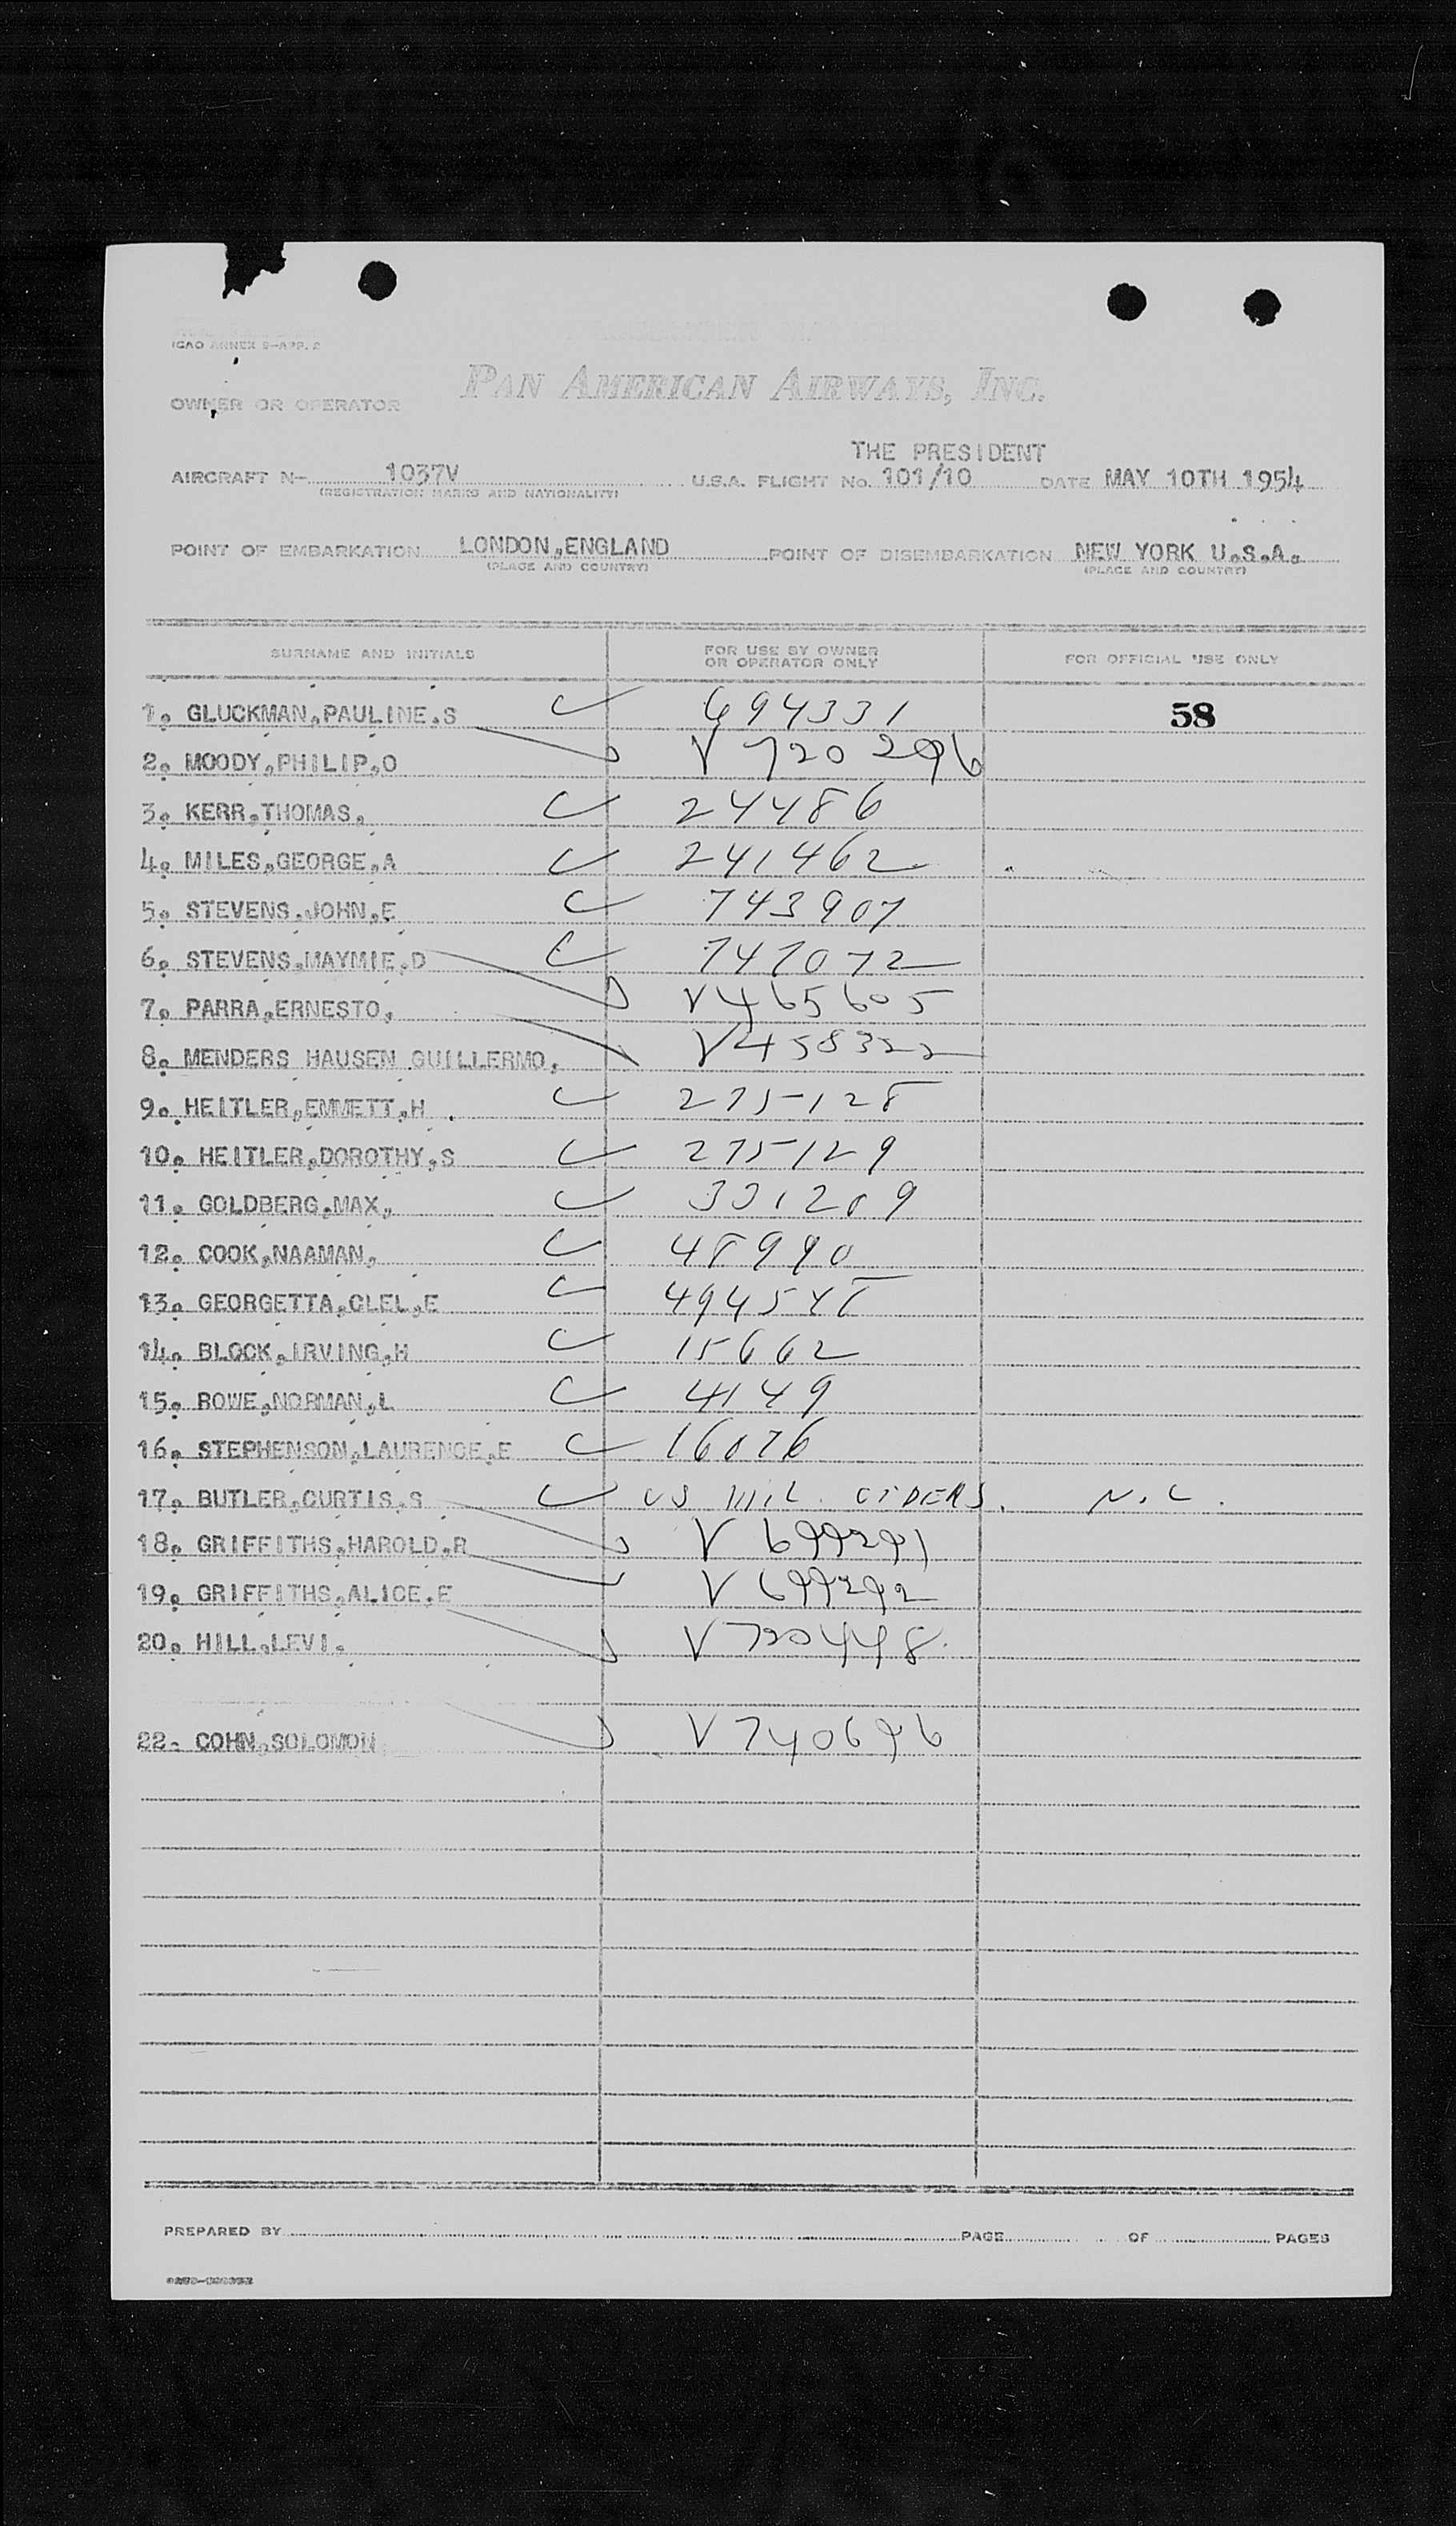 ICAO ANNEX 9-APP. 2
PAN AMERICAN AIRWAYS, INC.
OWNER OR OPERATOR
THE PRESIDENT
AIRCRAFT N- 1037V U.S.A. FLIGHT No. 101/10 DATE MAY 10TH 1954
(REGISTRATION MARKS AND NATIONALITY)
POINT OF EMBARKATION LONDON,ENGLAND POINT OF DISEMBARKATION NEW YORK U.S.A.
(PLACE AND COUNTRY) (PLACE AND COUNTRY)
SURNAME AND INITIALS FOR USE BY OWNER OR OPERATOR ONLY FOR OFFICIAL USE ONLY
1. GLUCKMAN,PAULINE.S 694331 58
2. MOODY,PHILIP,O V 720296
3. KERR,THOMAS, 24486
4. MILES,GEORGE,A 241462
5. STEVENS,JOHN,E 743907
6. STEVENS,MAYMIE,D 747072
7. PARRA,ERNESTO, V465605
8. MENDERS HAUSEN GUILLERMO, V458322
9. HEITLER,EMMETT,H. 275128
10. HEITLER,DOROTHY,S 275129
11. GOLDBERG,MAX, 331209
12. COOK,NAAMAN, 48990
13. GEORGETTA,CLEL,E 494548
14. BLOCK,IRVING,H 15662
15. ROWE,NORMAN,L 4149
16. STEPHENSON,LAURENCE,E 16076
17. BUTLER,CURTIS,S US MIL. ORDERS. N.C.
18. GRIFFITHS,HAROLD,R V 699291
19. GRIFFITHS,ALICE,E V 699292
20. HILL,LEVI. V720448
22- COHN,SOLOMON V740696
PREPARED BY PAGE OF PAGES